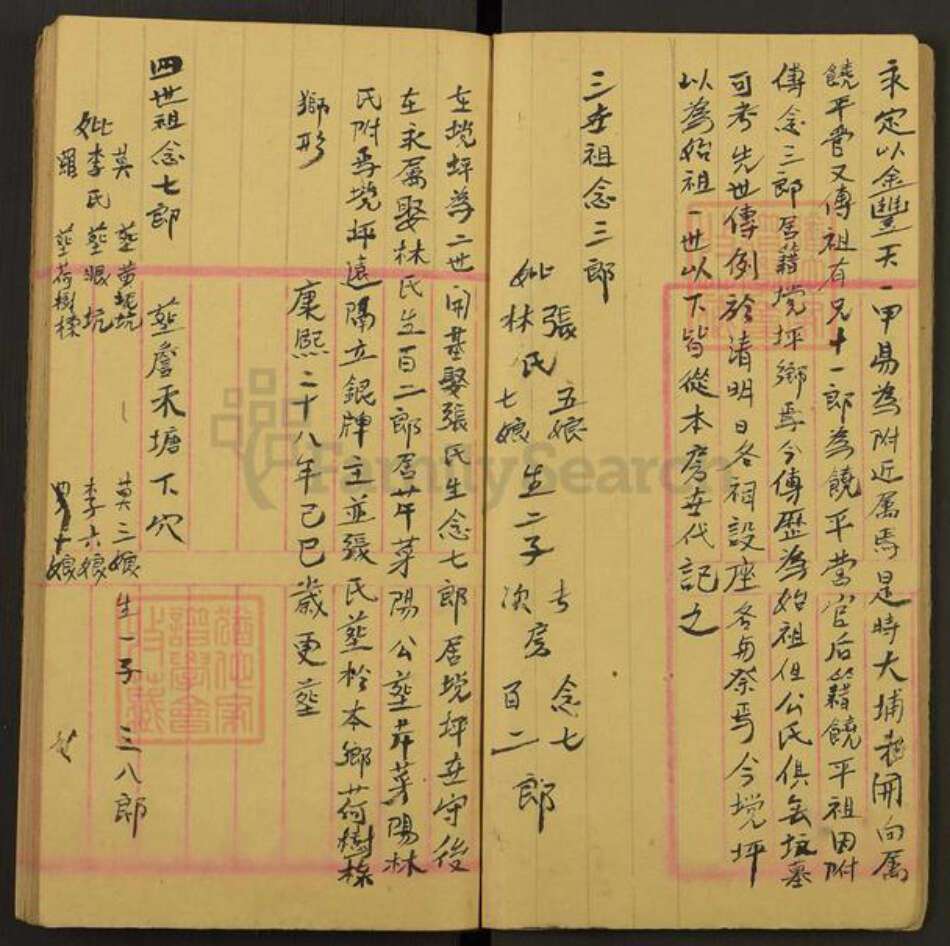 永定以金豐天一甲易為附近屬焉是時大埔稅開向屬
饒平營又傳祖有兄十一郎為饒平營官后籍饒平祖因附
傳念三郎居籍墝坪鄉焉今傳歷為始祖但公氏俱無坟墓
可考先世傳例於清明日各祠設座各每祭焉今墝坪
以為始祖一世以下皆從本房世代記之
三世祖念三郎
妣張氏五娘
林七娘
生二子
長房念七
次百二郎
在墝坪為二世開基娶張氏生念七郎居墝坪世守後
在永屬娶林氏生百二郎居芹菜陽公塟芹菜陽林
氏附焉墝坪遠隔立銀牌主並張氏塟於本鄉荷樹樑
獅形
康熙二十八年己巳歲更塟
四世祖念七郎 塟詹禾塘下穴
莫 塟黃坑 莫三娘
妣李氏 塟坑 李六娘 生一子 三八郎
羅 塟荷樹樑 十娘
FamilySearch